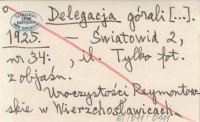 Delegacja górali [...].
1925. — Światowid 2,
nr 34. , il. Tylko fot.
z objaśn.
Uroczystości Reymontow-
skie w Wierzchosławicach.